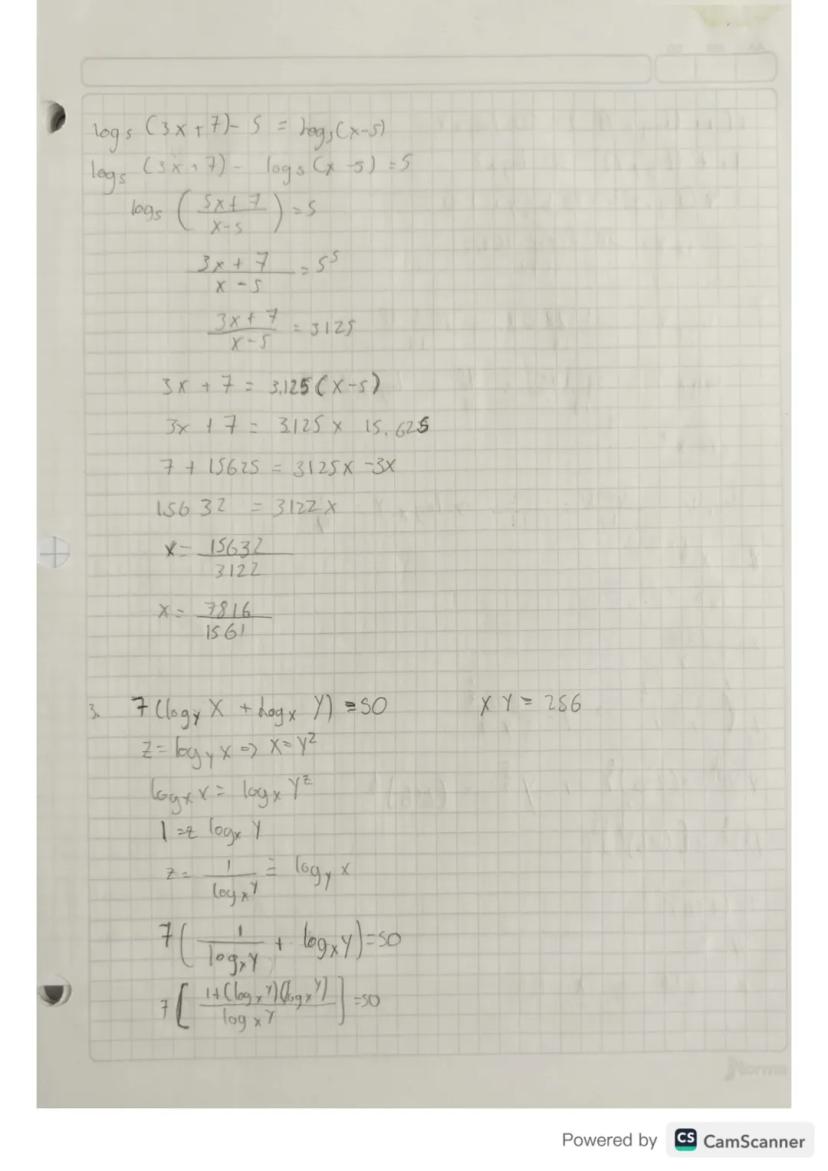 log₅ (3x + 7) - 5 = log₅(x-5)
log₅ (3x + 7) - log₅(x-5) = 5
log₅ ( (5x + 7)/(x-5) ) = 5
(3x + 7)/(x - 5) = 5⁵
(3x + 7)/(x-5) = 3125
3x + 7 = 3.125(x-5)
3x + 7 = 3125 x 15.625
7 + 15625 = 3125x - 3x
15632 = 3122x
x = 15632/3122
x = 7816/1561
3. 7(log_y X + log_x Y) = 50 XY = 256
z = log_y x => x = y^z
log_x x = log_x Y^z
1 = z log_x Y
z = 1/(log_x Y) = log_y x
7( 1/(log_x Y) + log_x Y) = 50
7[ (1+(log_x Y)(log_x Y))/(log_x Y) ] = 50
Norma
Powered by CS CamScanner